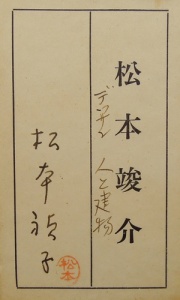 松本竣介
デッサン 人と建物
松本禎子
松本